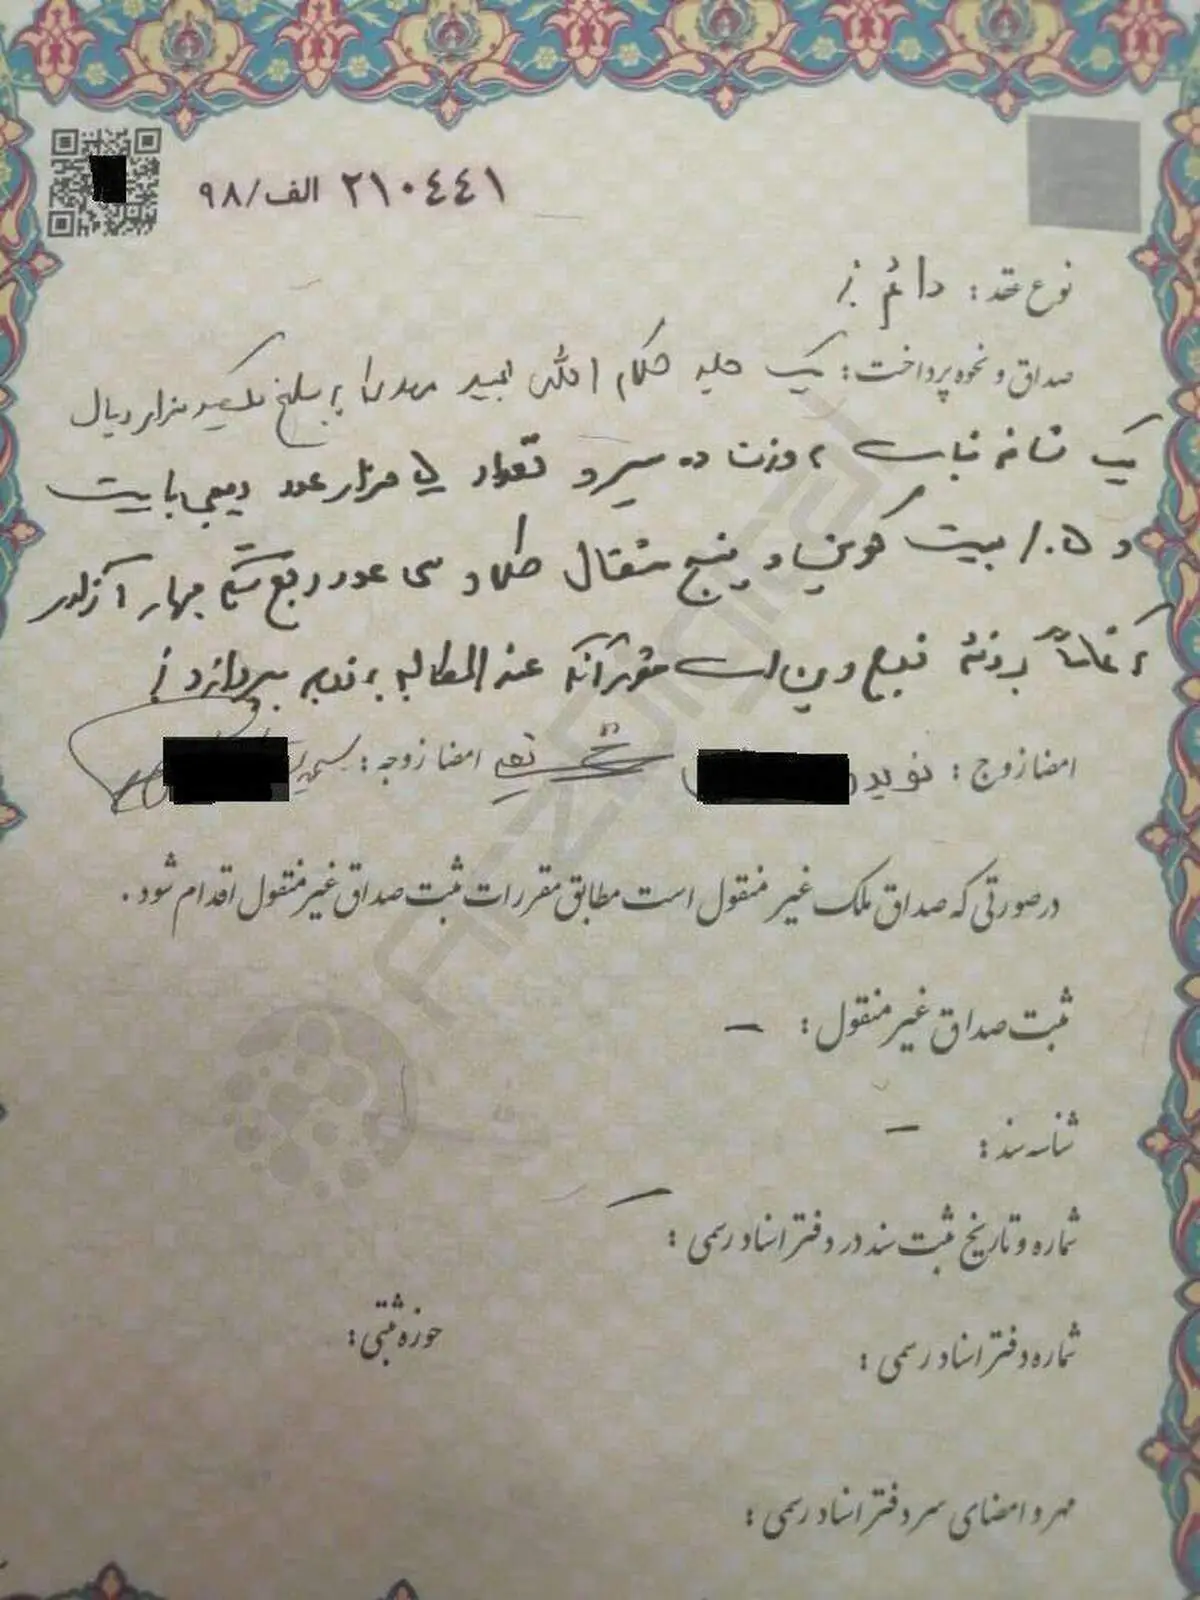 ۲۱۰۴۴۱ الف/۹۸
نوع عقد: دائم
صداق و نحوه پرداخت: یک جلد کلام الله مجید مهدی به مبلغ یکصد هزار ریال
یک شاخه نبات به وزن ده سیر و تعداد ۵ هزار عدد دیجی بایت
و ۱۰۵ بیت کوین و پنج مثقال طلا و سی عدد ربع سکه بهار آزادی
که تماماً بر ذمه زوج دین است مقرر آنکه عندالمطالبه به زوجه بپردازد
امضا زوج: نوید امضا زوجه:
در صورتی که صداق ملک غیر منقول است مطابق مقررات ثبت صداق غیر منقول اقدام شود.
ثبت صداق غیر منقول: –
شناسه سند: –
شماره و تاریخ ثبت سند در دفتر اسناد رسمی: –
شماره دفتر اسناد رسمی: حوزه ثبتی:
مهر و امضای سردفتر اسناد رسمی:
ARZDIGITAL